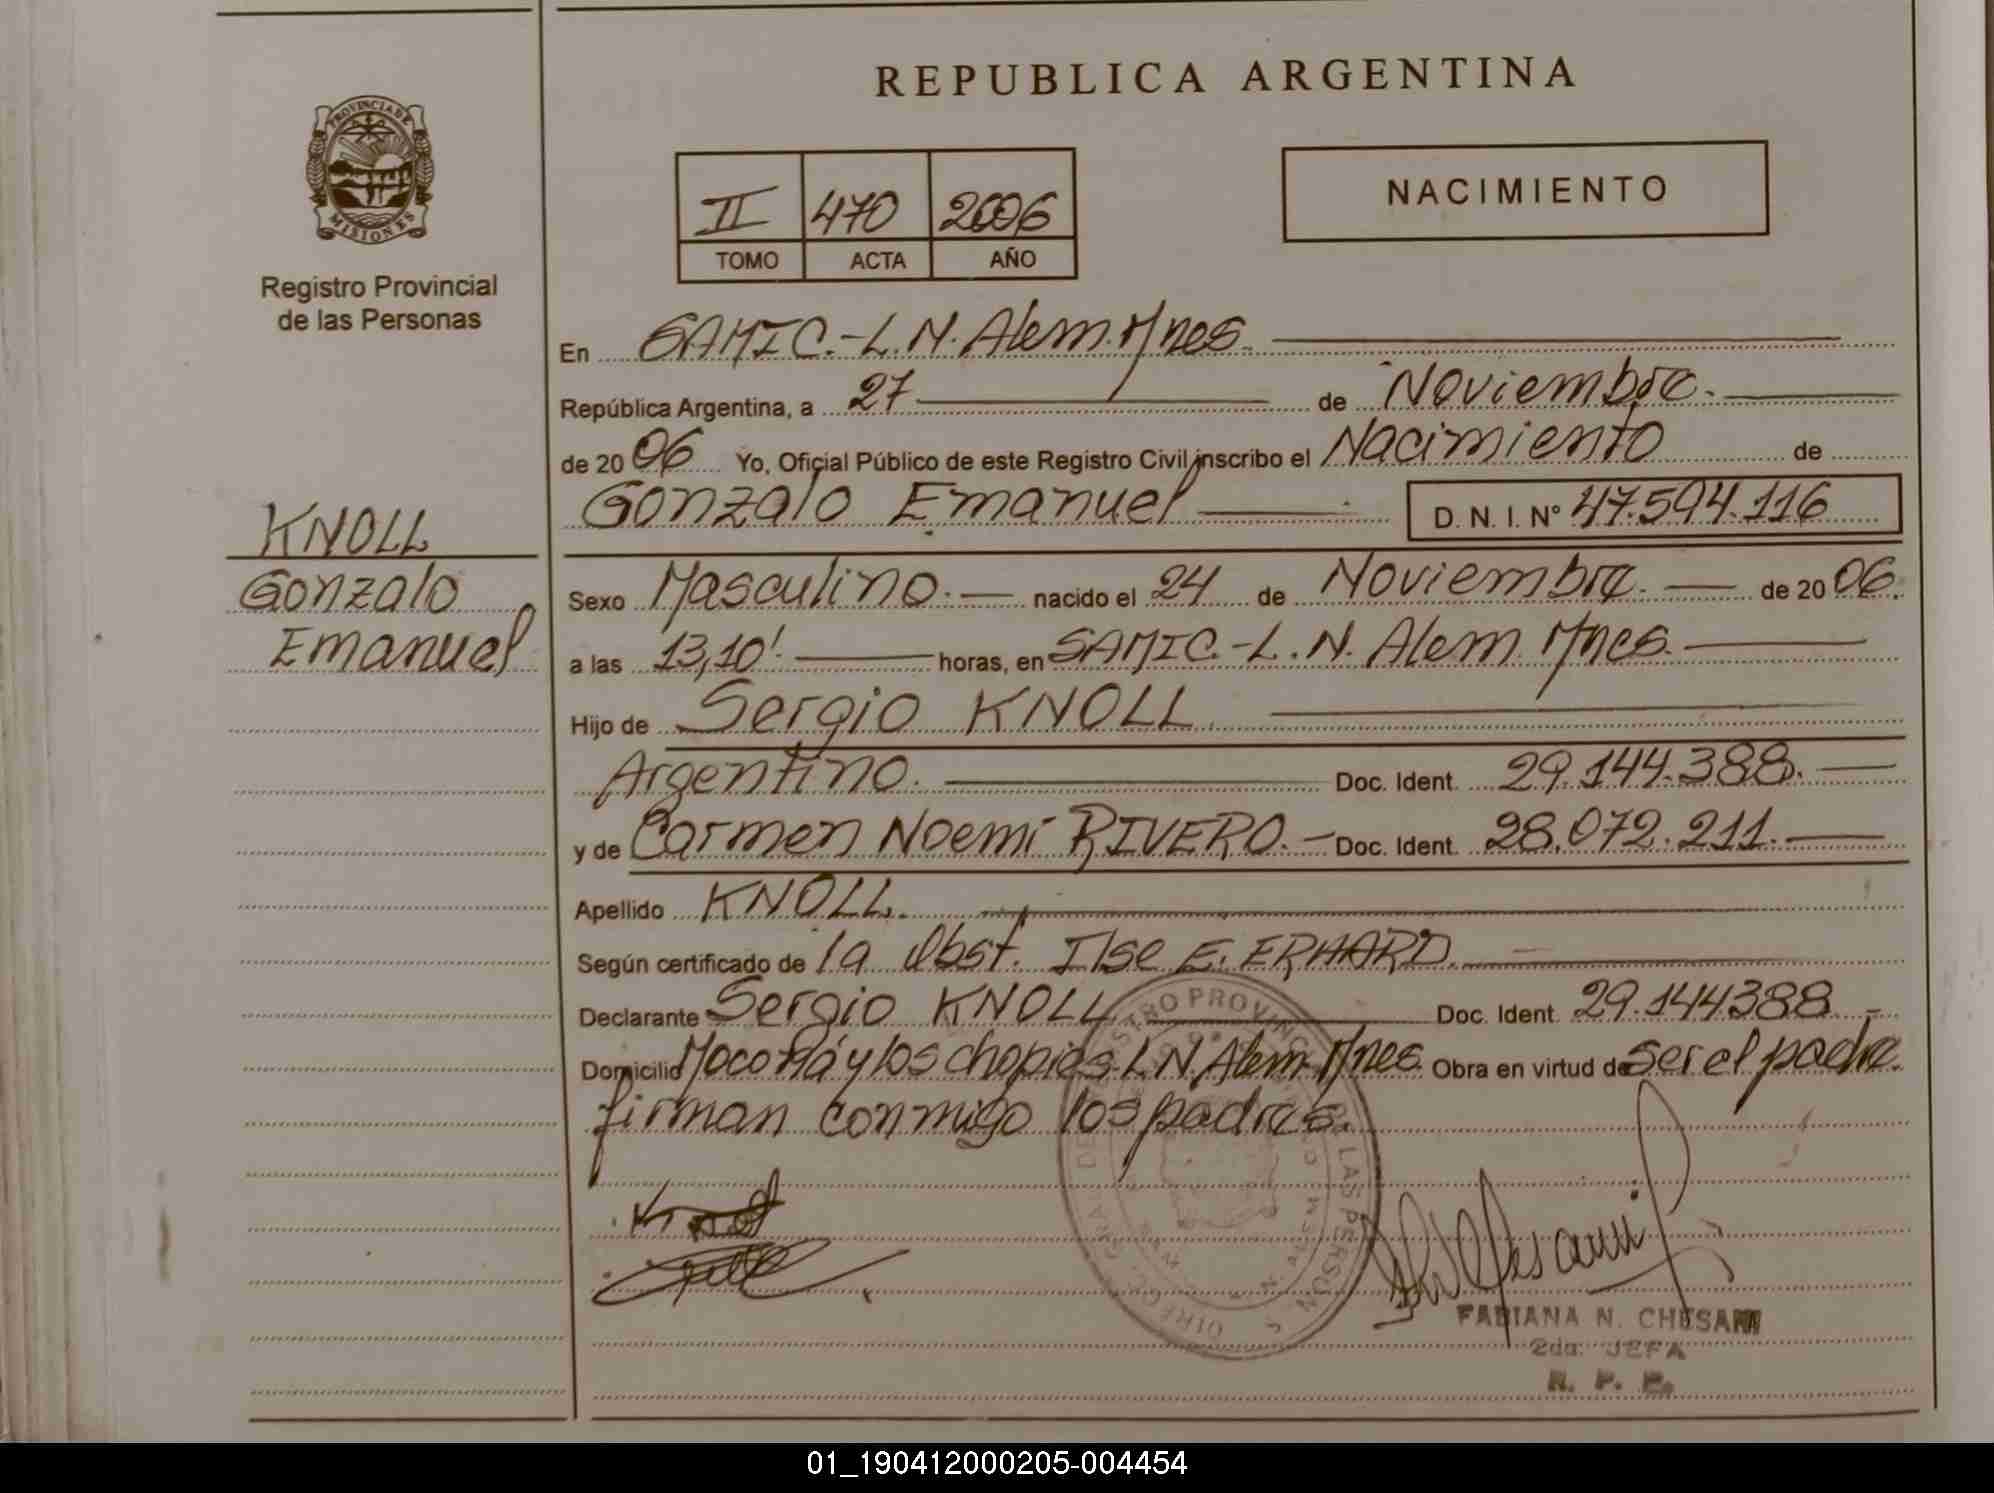 REPUBLICA ARGENTINA
PROVINCIA DE
MISIONES
Registro Provincial
de las Personas
II 470 2006
TOMO ACTA AÑO
NACIMIENTO
En SAMIC.-L.N. Alem. Mnes.
República Argentina, a 27 de Noviembre.
de 2006 Yo, Oficial Público de este Registro Civil inscribo el Nacimiento de
Gonzalo Emanuel D. N. I. N° 47.594.116
KNOLL
Gonzalo
Emanuel
Sexo Masculino. nacido el 24 de Noviembre. de 2006.
a las 13,10'. horas, en SAMIC.-L.N. Alem. Mnes.
Hijo de Sergio KNOLL.
Argentino. Doc. Ident. 29.144.388.
y de Carmen Noemí RIVERO.- Doc. Ident. 28.072.211.
Apellido KNOLL.
Según certificado de la Obst. Ilse E. ERHARD.
Declarante Sergio KNOLL Doc. Ident. 29.144388.-
Domicilio Moconá y los chopies. L.N. Alem- Mnes. Obra en virtud de ser el padre.
firman conmigo los padres.
FABIANA N. CHESANI
2da. JEFA
R. P. P.
01_190412000205-004454